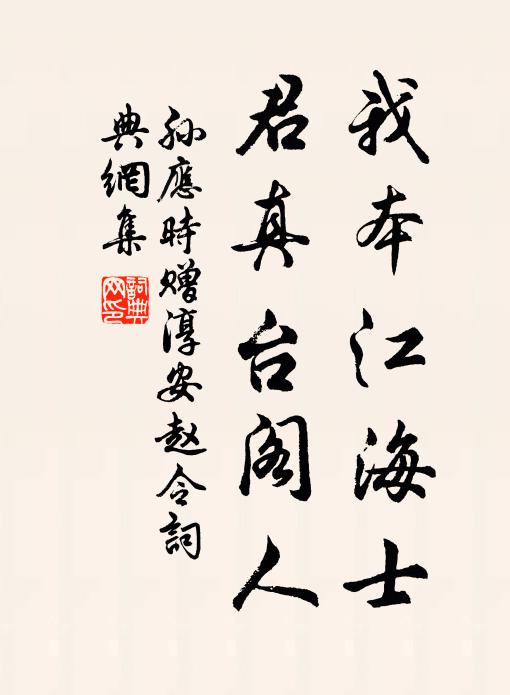 我本江海士
君真台阁人
孙應時赠淳安赵令詞
典網集
詞典
网印